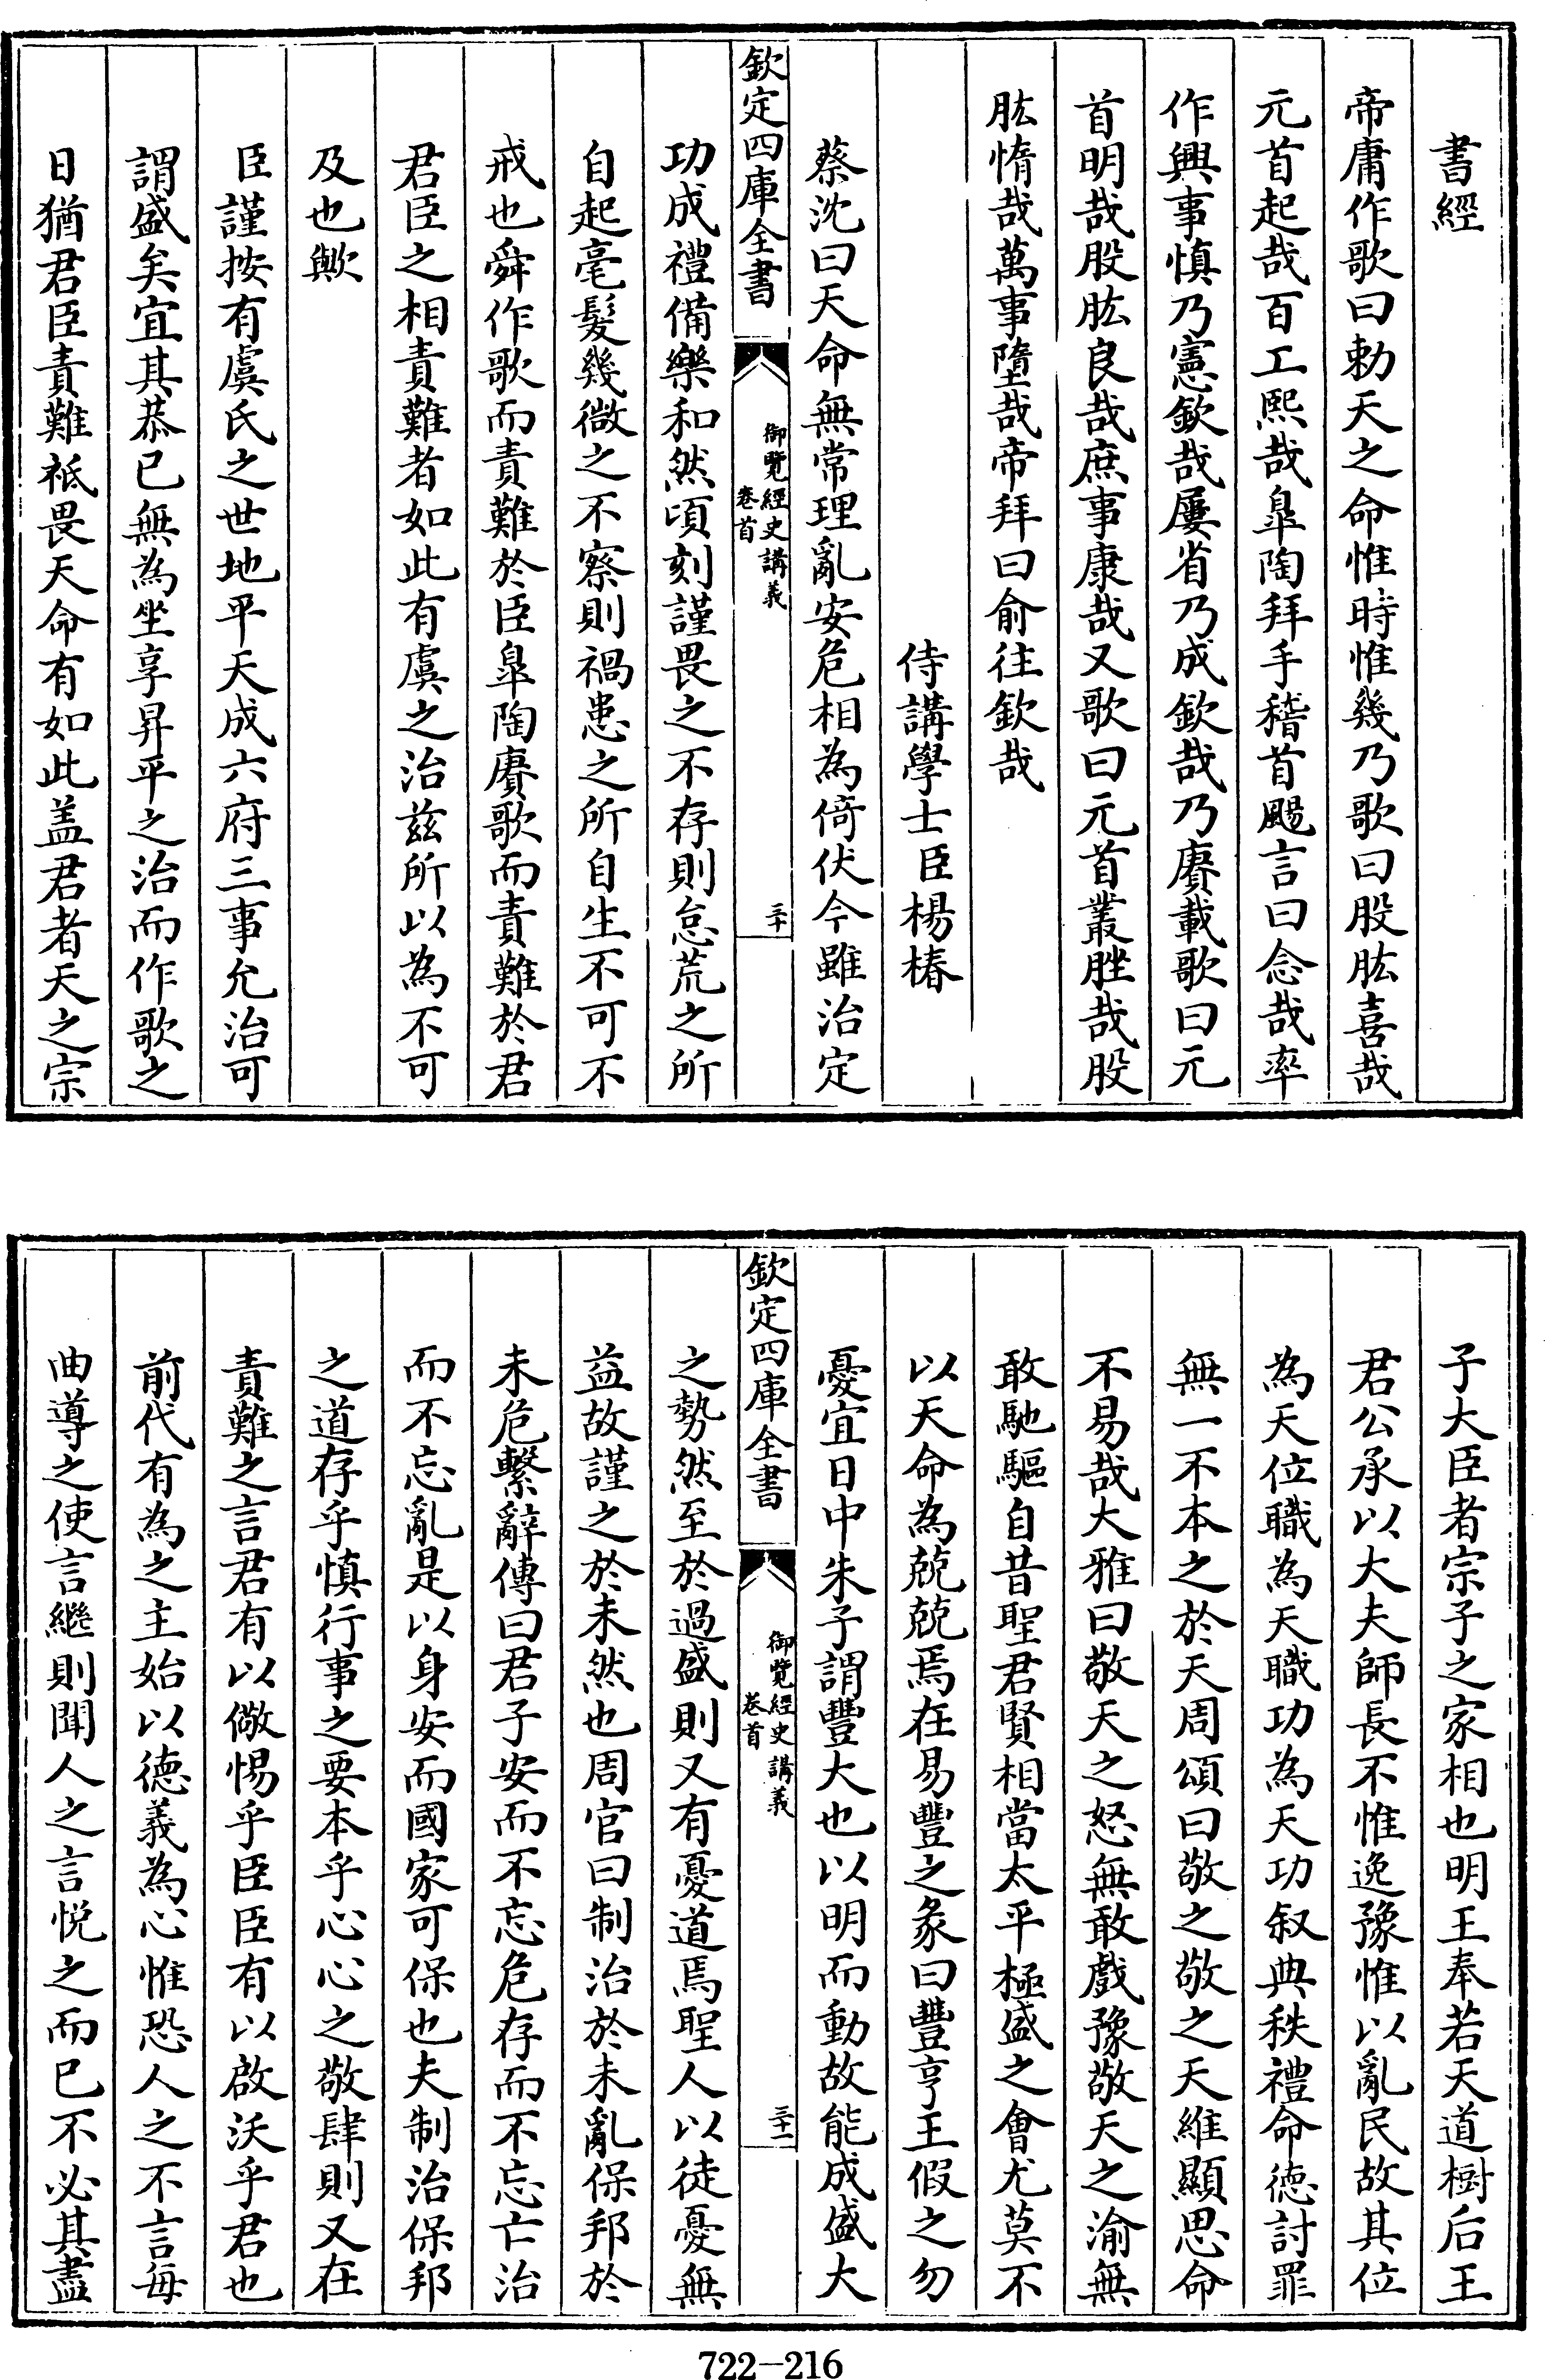 書經
帝庸作歌曰勅天之命惟時惟幾乃歌曰股肱喜哉
元首起哉百工熙哉臯陶拜手稽首颺言曰念哉率
作興事慎乃憲欽哉屢省乃成欽哉乃賡載歌曰元
首明哉股肱良哉庶事康哉又歌曰元首叢脞哉股
肱惰哉萬事墮哉帝拜曰俞往欽哉
侍講學士臣楊椿
蔡沈曰天命無常理亂安危相為倚伏今雖治定
欽定四庫全書
御覽經史講義
卷首
三十
功成禮備樂和然頃刻謹畏之不存則怠荒之所
自起毫髮幾微之不察則禍患之所自生不可不
戒也舜作歌而責難於臣臯陶賡歌而責難於君
君臣之相責難者如此有虞之治茲所以為不可
及也歟
臣謹按有虞氏之世地平天成六府三事允治可
謂盛矣宜其恭已無為坐享昇平之治而作歌之
日猶君臣責難祗畏天命有如此盖君者天之宗
子大臣者宗子之家相也明王奉若天道樹后王
君公承以大夫師長不惟逸豫惟以亂民故其位
為天位職為天職功為天功叙典秩禮命德討罪
無一不本之於天周頌曰敬之敬之天維顯思命
不易哉大雅曰敬天之怒無敢戲豫敬天之渝無
敢馳驅自昔聖君賢相當太平極盛之會尤莫不
以天命為兢兢焉在易豐之彖曰豐亨王假之勿
憂宜日中朱子謂豐大也以明而動故能成盛大
欽定四庫全書
御覽經史講義
卷首
三十一
之勢然至於過盛則又有憂道焉聖人以徒憂無
益故謹之於未然也周官曰制治於未亂保邦於
未危繫辭傳曰君子安而不忘危存而不忘亡治
而不忘亂是以身安而國家可保也夫制治保邦
之道存乎慎行事之要本乎心心之敬肆則又在
責難之言君有以儆惕乎臣臣有以啟沃乎君也
前代有為之主始以德義為心惟恐人之不言每
曲導之使言繼則聞人之言悅之而已不必其盡
722-216